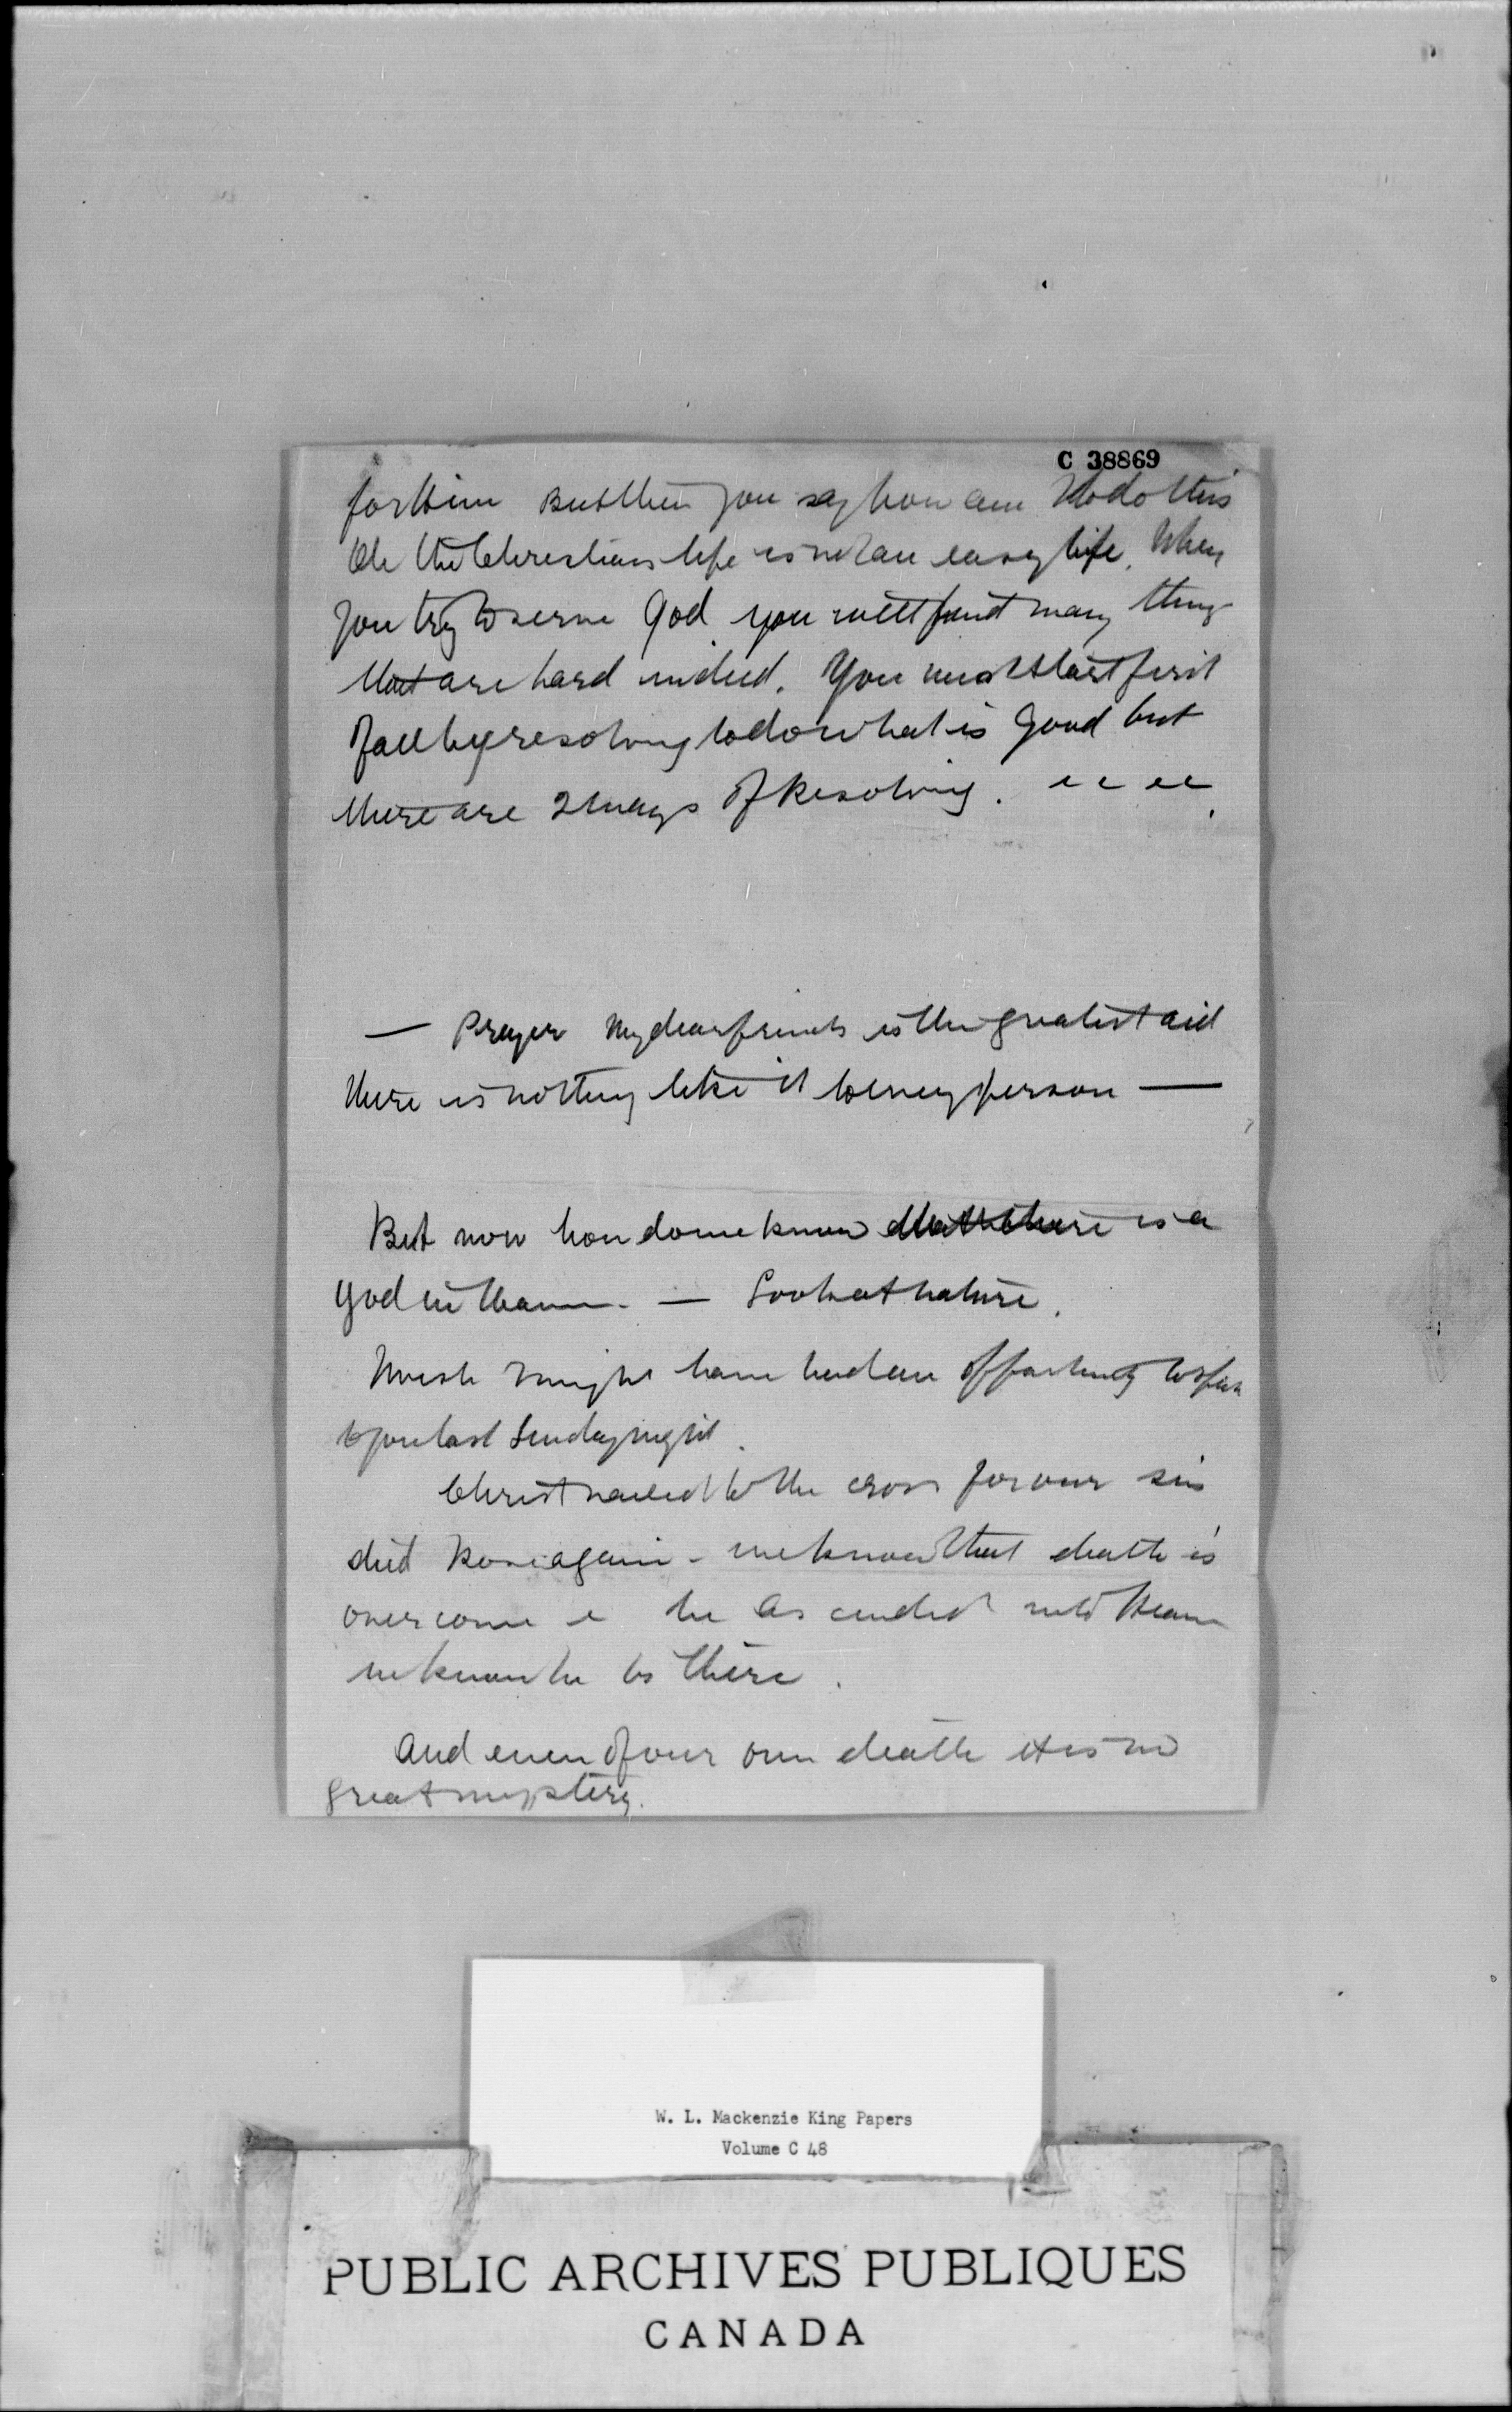 C 38869
for Him But then you say how am I to do this
Oh the Christian life is not an easy life. When
you try to serve God you will find many things
that are hard indeed. You must start first
of all by resolving to do what is good but
there are 2 ways of Resolving.
— Prayer My dear friends is the greatest aid
there is nothing like it to every person —
But now how do we know that there is a
God in Heaven. — Look at nature.
I wish I might have had an opportunity to speak
to you last Sunday night.
Christ nailed to the cross for our sins
died Rose again - we know that death is
overcome & he ascended into Heaven
we know he is there.
And even of our own death it is no
great mystery.
W. L. Mackenzie King Papers
Volume C 48
PUBLIC ARCHIVES PUBLIQUES
CANADA